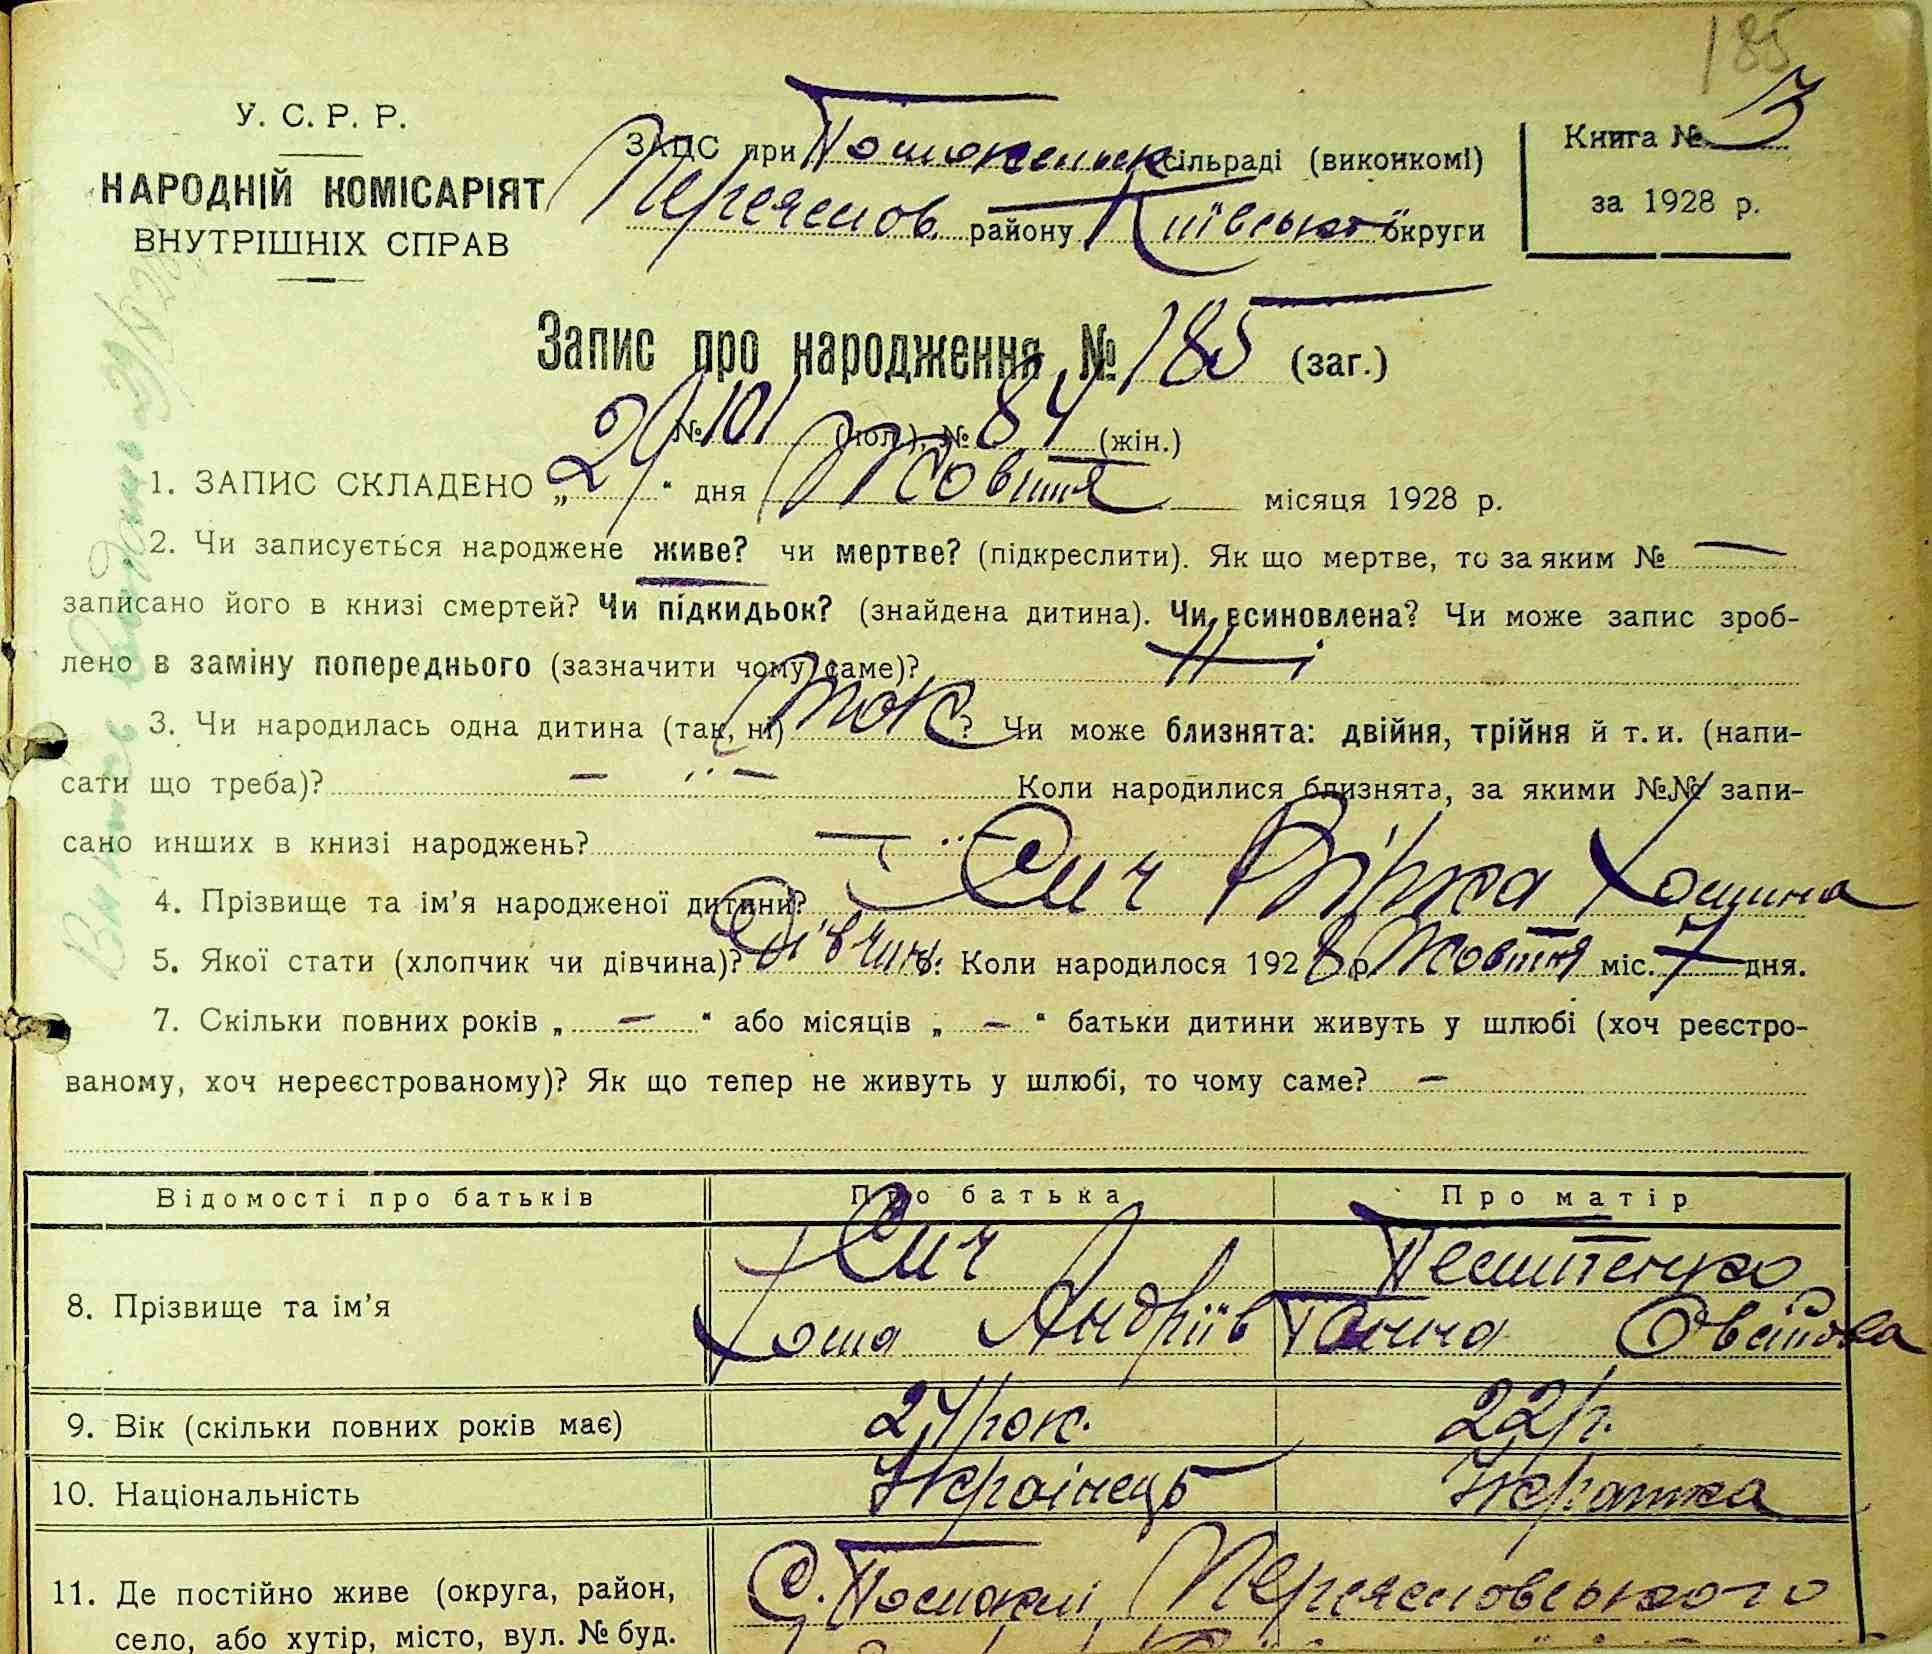 185
У. С. Р. Р.
НАРОДНІЙ КОМІСАРІЯТ
ВНУТРІШНІХ СПРАВ
ЗАПС при сільраді (виконкомі)
Переяслов. району Київської округи
Книга № 3
за 1928 р.
Запис про народження № 185 (заг.)
№ 101 (чол.), № 84 (жін.)
1. ЗАПИС СКЛАДЕНО „29“ дня Жовтня місяця 1928 р.
2. Чи записується народжене живе? чи мертве? (підкреслити). Як що мертве, то за яким № —
записано його в книзі смертей? Чи підкидьок? (знайдена дитина). Чи всиновлена? Чи може запис зроб-
лено в заміну попереднього (зазначити чому саме)? Ні
3. Чи народилась одна дитина (так, ні) так ? Чи може близнята: двійня, трійня й т. и. (напи-
сати що треба)? — „ — Коли народилися близнята, за якими №№ запи-
сано инших в книзі народжень? — „ —
4. Прізвище та ім'я народженої дитини? Сич Вірка Хомина
5. Якої стати (хлопчик чи дівчина)? дівчина. Коли народилося 1928 р. Жовтня міс. 7 дня.
7. Скільки повних років „ — “ або місяців „ — “ батьки дитини живуть у шлюбі (хоч реєстро-
ваному, хоч нереєстрованому)? Як що тепер не живуть у шлюбі, то чому саме? —
Відомості про батьків Про батька Про матір
8. Прізвище та ім'я Сич
Хома Андріїв Ганна
9. Вік (скільки повних років має) 24 рок. 22 р.
10. Національність Українець Укр-нка
11. Де постійно живе (округа, район, С. Помоклі, Переясловського
село, або хутір, місто, вул. № буд.